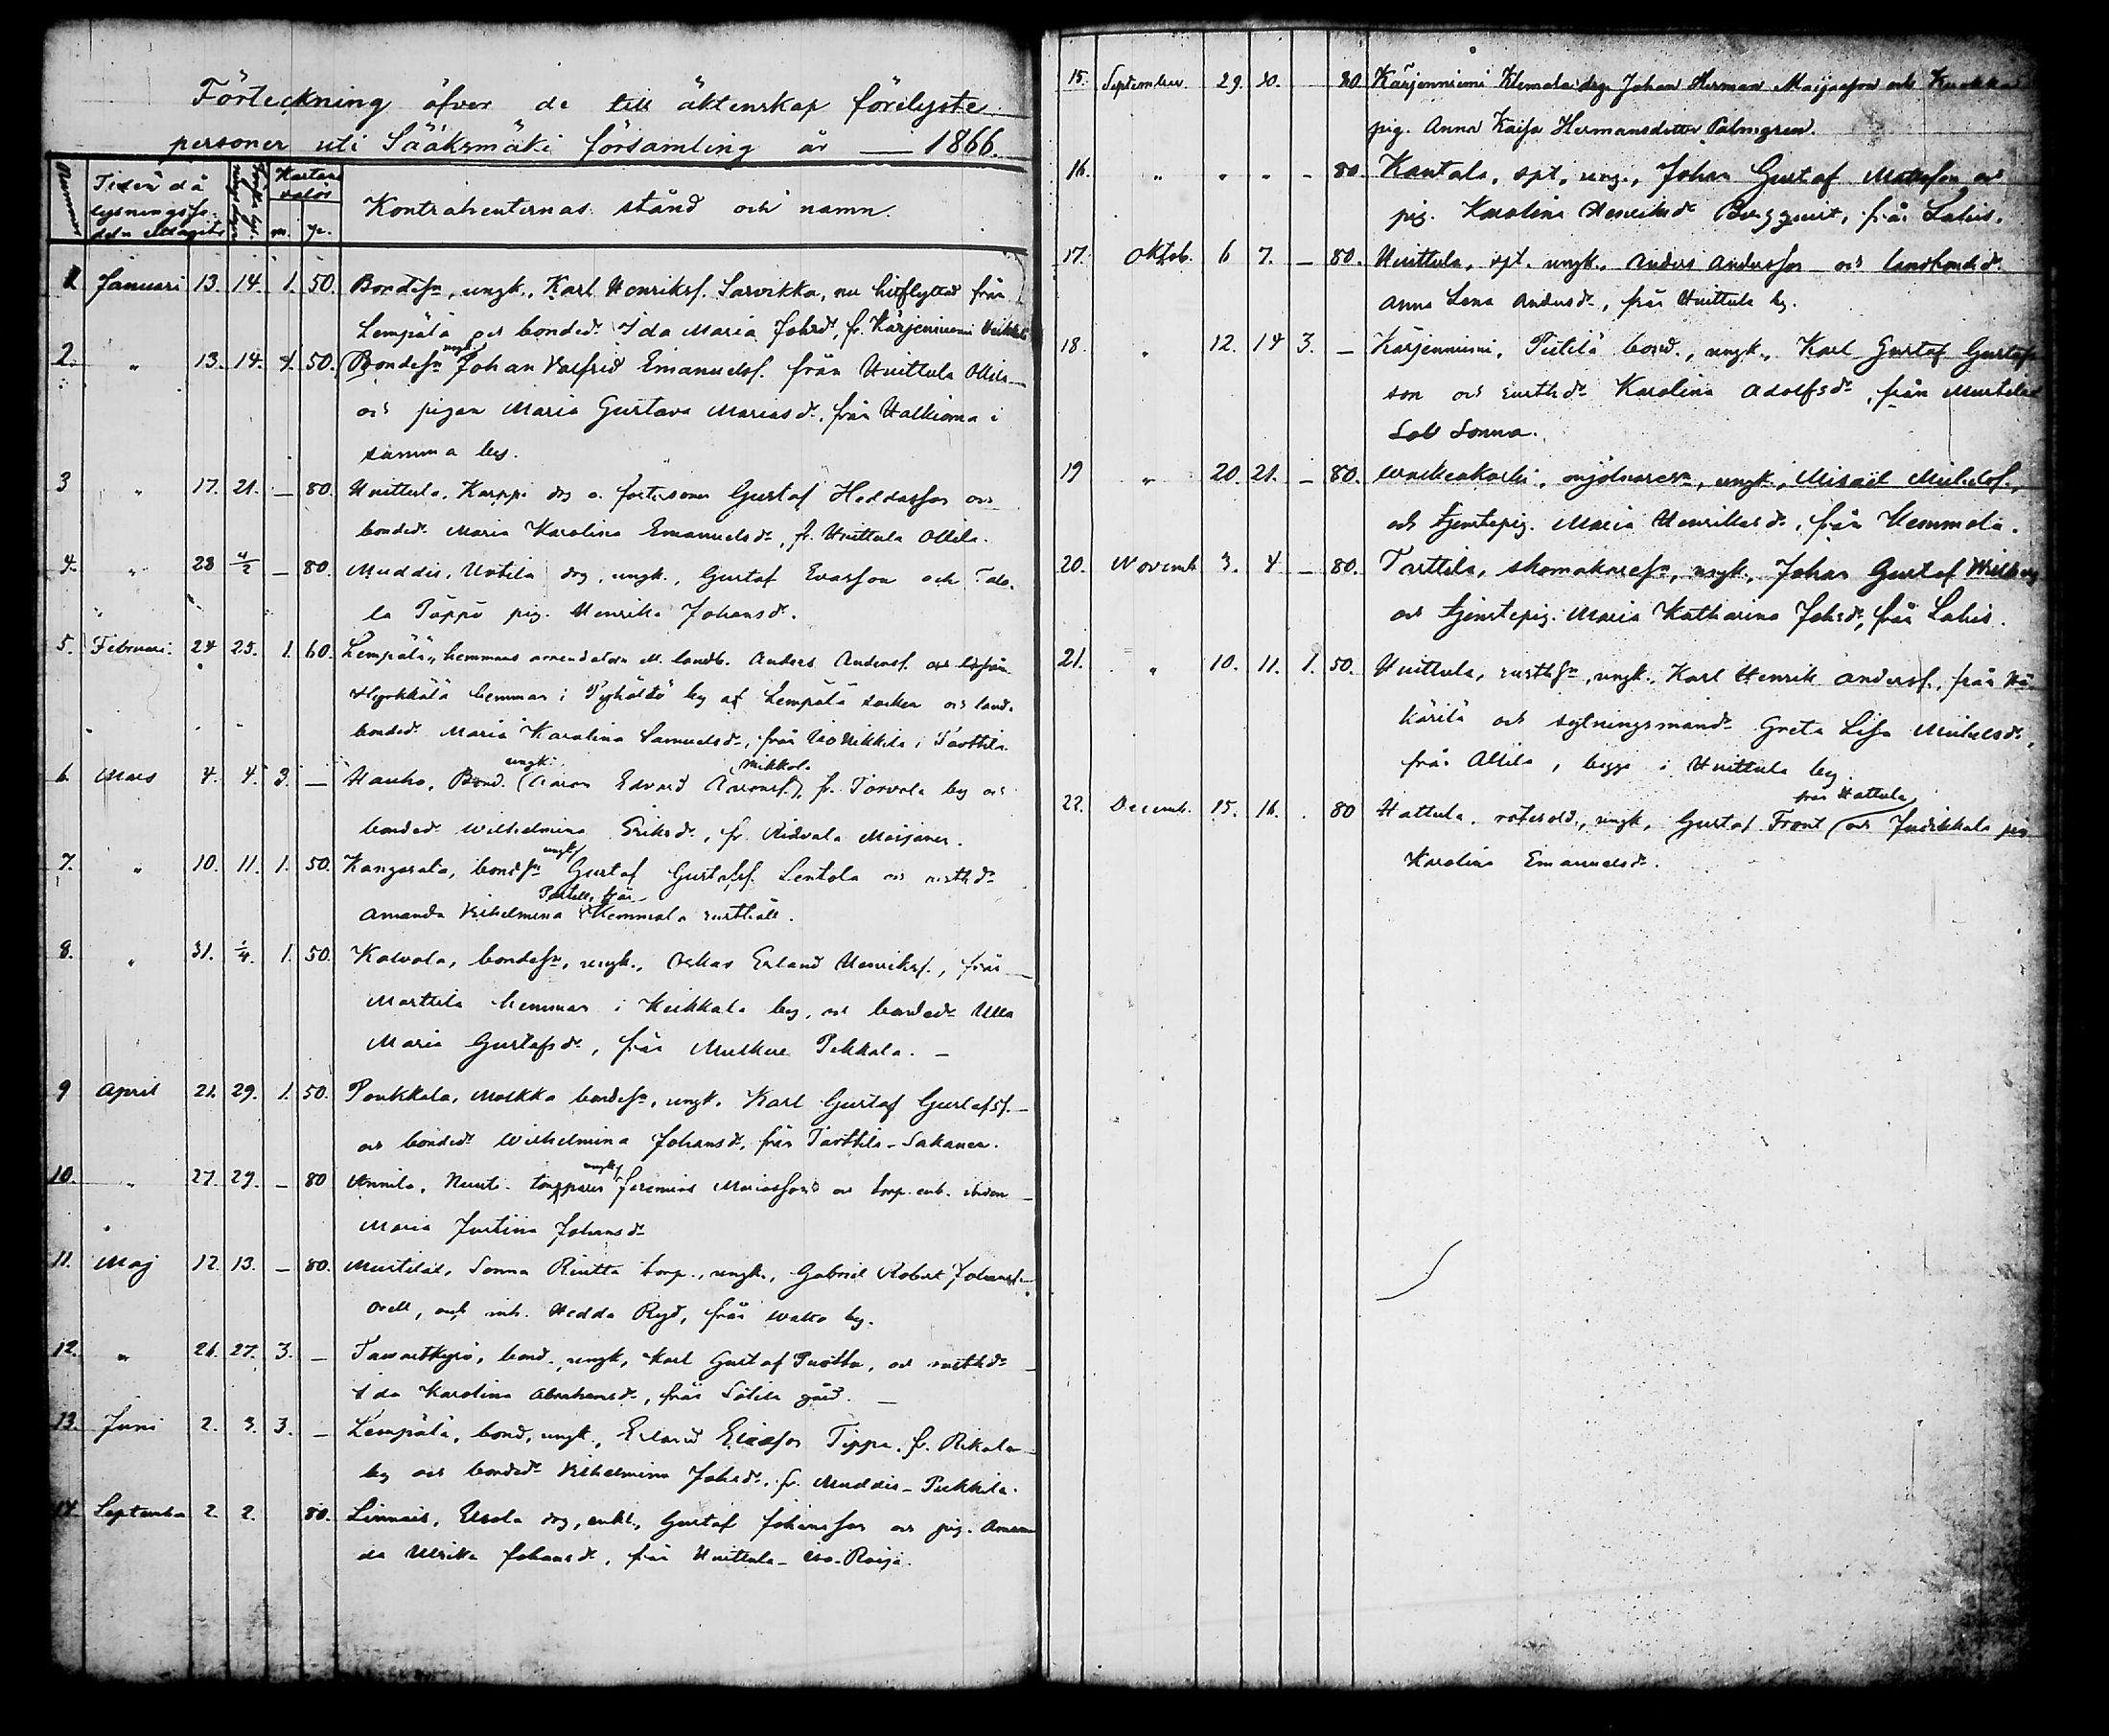 Förteckning öfver de till äktenskap förelyste
personer uti Sääksmäki församling år — 1866.
Nummer
Tiden då
lysningsse-
deln uttagits
Kartans
valör
m. p.
Kontrahenternas stånd och namn.
1 Januari 13. 14. 1. 50. Bondesn, ungk., Karl Henriksf. Sarvikka, nu hitflyttad från
Lempälä och bonded. Ida Maria Johsdr, fr. Kärjenniemi Heikkilä
2. " 13. 14. 1. 50. Bondesn ungk. Johan Valfrid Emanuelsf. från Huittula Ollila
och pigan Maria Gustava Mariasdr, från Halkioma i
samma by.
3 " 17. 21. — 80. Huittula, Karppi drg o. fosterson Gustaf Heddasson och
bonded. Maria Karolina Emanuelsdr, fr. Huittula Ollila.
4. " 28 4/2 — 80. Muddis, Uotila drg, ungk., Gustaf Evasson och
la Pappi pig. Henrika Johansdr.
5. Februari. 24 25. 1. 60. Lempälä, hemmans arrendatorn m. landb. Anders Andersf.
hemman i by af Lempälä socken och land-
bonded. Maria Karolina Samuelsdr, från Iso Nikkilä i Tarttila.
6. Mars 4. 4. 3. — Hauho, Bond. ungk. (Aaron Edvard Aronsf.) Mikkola fr. Torvola by och
bonded. Wilhelmina Eriksdr, fr. Ridvala Maijanen.
7. " 10. 11. 1. 50. Kangasala, bondesn ungk. Gustaf Gustafsf. Lentola och rusthdr
Amanda Vilhelmina från Hemmola rusthåll.
8. " 31. 1/4. 1. 50. Kalvola, bondesn, ungk., Oskar Erland Henriksf., från
Marttila hemman i Keikkala by, och bondedr Ulla
Maria Gustafsdr, från Mälkiä Pekkala. —
9 April 21. 29. 1. 50. Ponkkala, bondesn, ungk. Karl Gustaf Gustafsf.
och bondedr Wilhelmina Johansdr, från Tarttila-Sakanen.
10. " 27. 29. — 80 Annila, torpparen ungk. Jeremias Mariasson och torp. enk.
Maria Justina Johansdr
11. Maj 12. 13. — 80. Mustilat, Sonna Riutta torp., ungk., Gabriel Robert Johansf.
Orell, och inh. Hedda Ryd, från Walto by.
12. " 26. 27. 3. — Tavastkyrö, bond. ungk, Karl Gustaf och rusthdr
Ida Karolina Abrahamsdr, från gård. —
13. Juni 2. 3. 3. — Lempälä, bond, ungk., Erland Ericsson Tippa. fr. Rikala
by och bondedr Vilhelmina Johsdr, fr. Muddis-Pukkila.
14. September 2. 2. 80. Linnais, Uvola drg, enkl., Gustaf Johansson och pig. Aman-
da Ulrika Johansdr, från Huittula-Iso-Raija.
15. September 29. 30. 80 Kärjenniemi Klemola drg. Johan Herman Maijasson och
pig. Anna Kaisa Hermansdotter Palmgren.
16. " " " — 80. Kantala, spt, ung., Johan Gustaf Matsson och
pig. Karolina Henriksdr Bergqvist, från Lahis.
17. Oktob. 6 7. — 80. Huittula, spt. ungk., Anders Andersson och landbondedr.
Anna Lena Andersdr, från Huittula by.
18. " 12. 14 3. — Kärjenniemi, Pietilä bond., ungk., Karl Gustaf Gustafs-
son och rusthdr Karolina Adolfsdr, från Mustilat
Sonna.
19 " 20. 21. — 80. mjölnaresn, ungk., Misaël Mickelsf.,
och tjenstepig. Maria Henriksdr, från Hemmola.
20. Novemb. 3. 4 — 80. Tarttila, skomakaresn, ungk., Johan Gustaf
och tjenstepig. Maria Katharina Johsdr, från Lahis.
21. " 10. 11. 1. 50. Huittula, rusthsn, ungk., Karl Henrik Andersf., från
och sytningsmandr Greta Lisa Mickelsdr,
från Ollila, bägge i Huittula by.
22. Decemb. 15. 16. . 80 Hattula, rotesold., ungk, Gustaf Front (från Hattula) och Judikkala pig
Karolina Emanuelsdr.